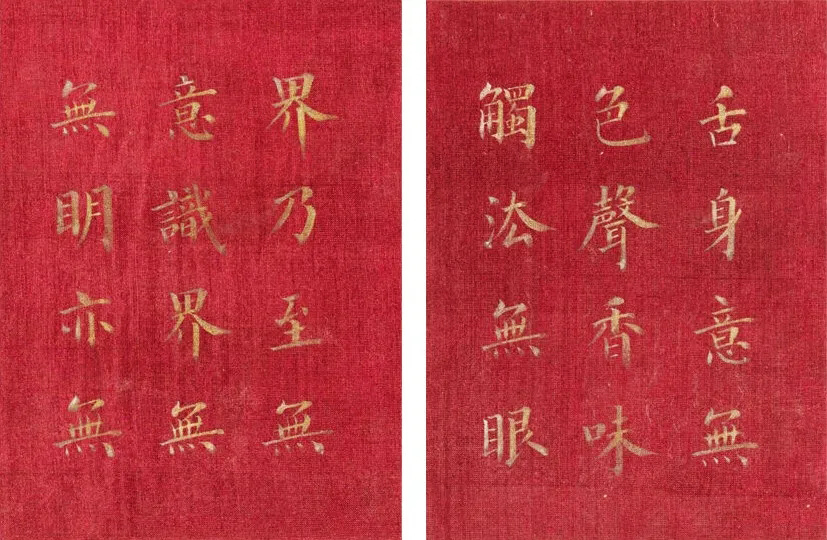 舌身意無
色聲香味
觸法無眼
界乃至無
意識界無
無明亦無